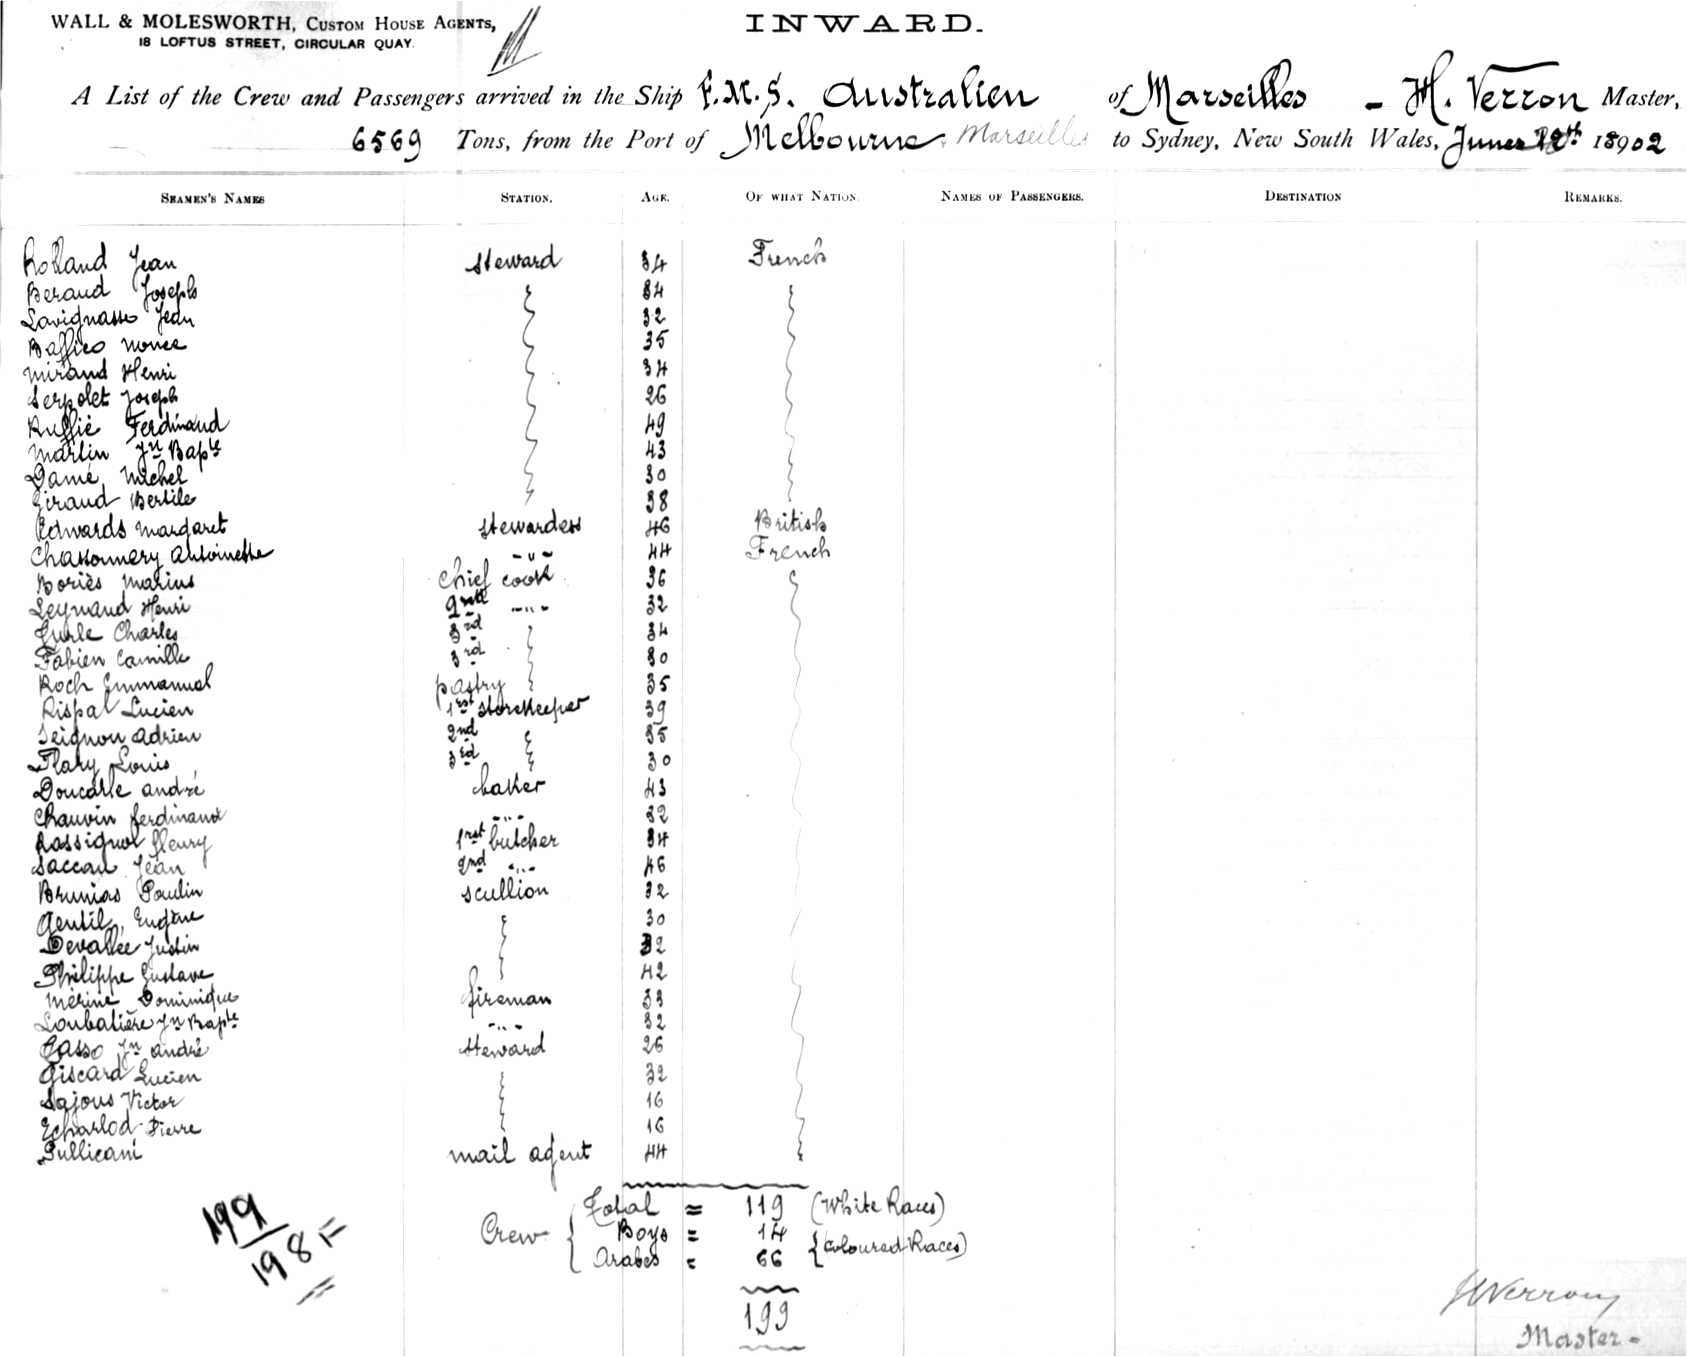 WALL & MOLESWORTH, CUSTOM HOUSE AGENTS,
18 LOFTUS STREET, CIRCULAR QUAY.
INWARD.
A List of the Crew and Passengers arrived in the Ship F.M.S. Australien of Marseilles - H. Verron Master,
6569 Tons, from the Port of Melbourne. Marseilles to Sydney, New South Wales, June 12th 1902
SEAMEN'S NAMES STATION. AGE. OF WHAT NATION. NAMES OF PASSENGERS. DESTINATION REMARKS.
Rolland Jean steward 34 French
Beraud Joseph 34
Lavignasse Jean 32
Baffico Nonce 35
Mirand Henri 34
Serpolet Joseph 26
Ruffié Ferdinand 49
Martin Jn Bapte 43
Damé Michel 30
Giraud Bertile 38
Edwards Margaret stewardess 46 British
Chassonnery Antoinette -"- 44 French
Boriès Marius chief cook 36
Leynaud Henri 2nd -"- 32
Charles 3rd 34
Fabien Camille 3rd 30
Roch Emmanuel pastry 35
Rispal Lucien 1rst storekeeper 39
Seignou Adrien 2nd 35
Flary Louis 3rd 30
André baker 43
Chauvin Ferdinand -"- 32
Rossignol fleury 1rst butcher 34
Saccau Jean 2nd -"- 46
Brunias Paulin scullion 32
Gentil, Eugène 30
Devallée Justin 32
Philippe Gustave 42
Mérine Dominique fireman 33
Loubatière Jn Bapte -"- 32
Gasso Jn André steward 26
Giscard Lucien 32
Sajous Victor 16
Echarlod Pierre 16
Pullicani mail agent 44
Crew { Total = 119 (White Races)
Boys = 14 { (Coloured Races)
Arabes = 66
199
199
198
HVerron
Master -